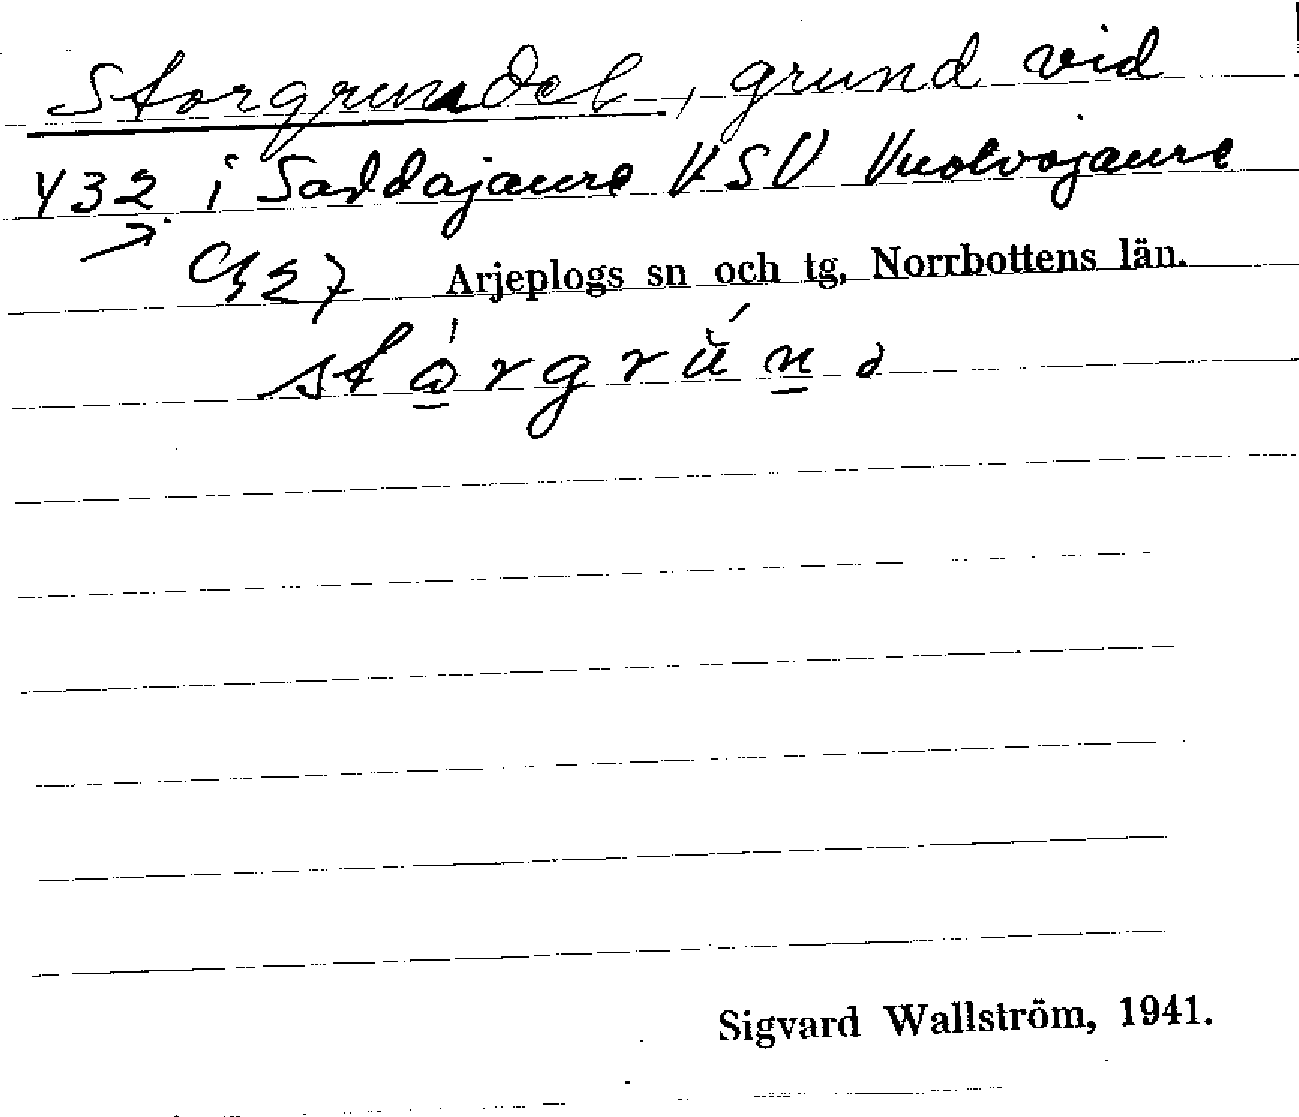 Storgrundet, grund vid
432 i Saddajaure VSV Vuolvojaure
Arjeplogs sn och tg, Norrbottens län.
stórgrún d
Sigvard Wallström, 1941.